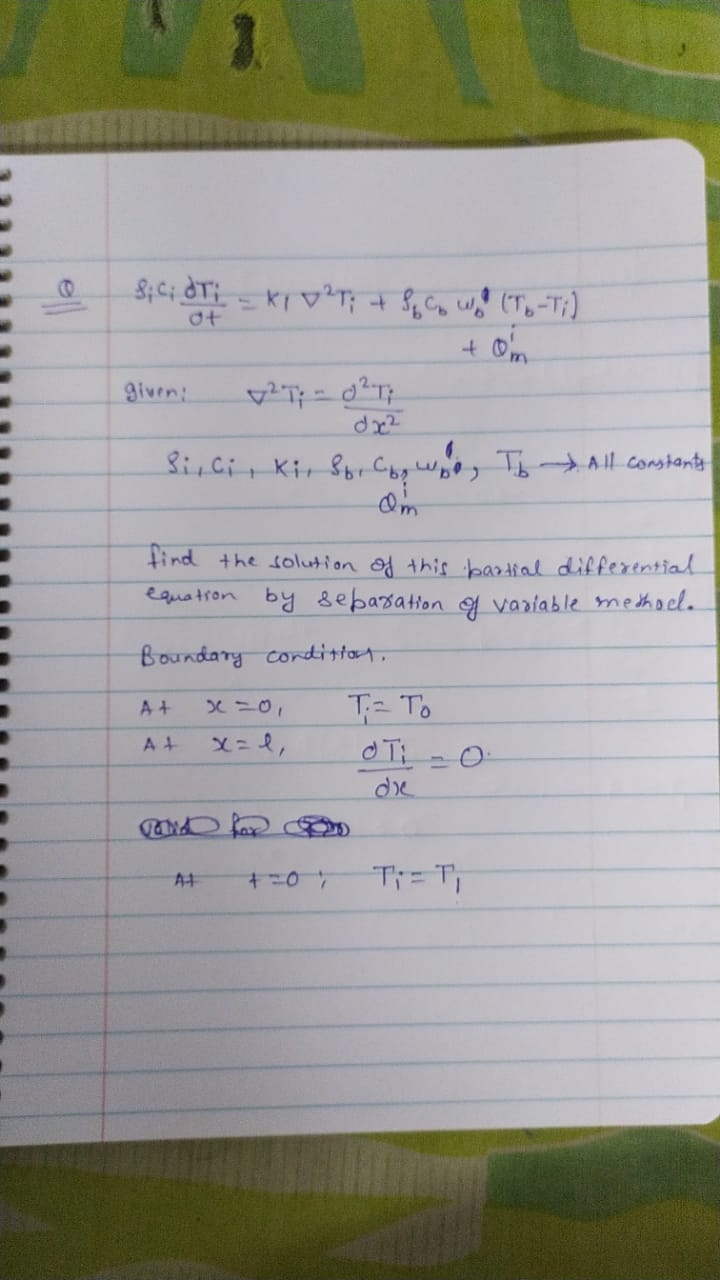 Q ρiCi ∂Ti/∂t = K1 ∇²Ti + ρb Cb ωb' (Tb-Ti)
+ Q̇m
given: ∇²Ti = ∂²Ti/dx²
ρi, Ci, Ki, ρb, Cb, ωb', Tb → All constants
Q̇m
find the solution of this partial differential
equation by separation of variable method.
Boundary condition.
At x=0, Ti = To
At x=l, dTi/dx = 0.
At t=0; Ti = T1